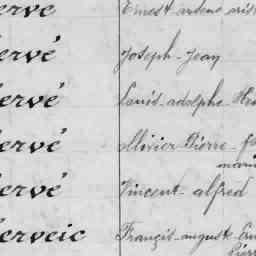 erve Ernest
ervé Joseph - Jean
ervé Louis - adolphe
ervé Ollivier - Pierre -
ervé Vincent - alfred
erveic Françis - auguste